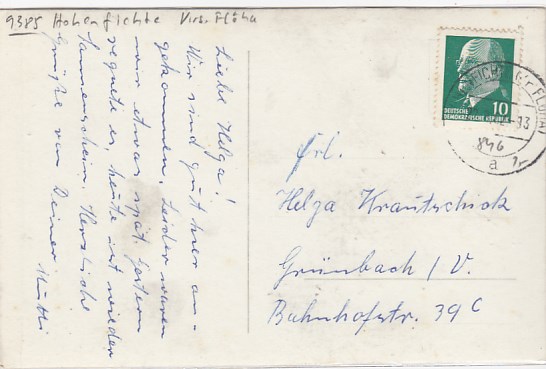 9385 Hohenfichte Krs. Flöha
Liebe Helga!
Wir sind gut hier an-
gekommen, leider waren
wir etwas spät. Gestern
regnete es, heute ist wieder
Sonnenschein. Herzliche
Grüße von Deiner
Mutti
DEUTSCHE
DEMOKRATISCHE REPUBLIK
10
FLÖHA
846
a
Frl.
Helga Krautschick
Grünbach / V.
Bahnhofstr. 39 c